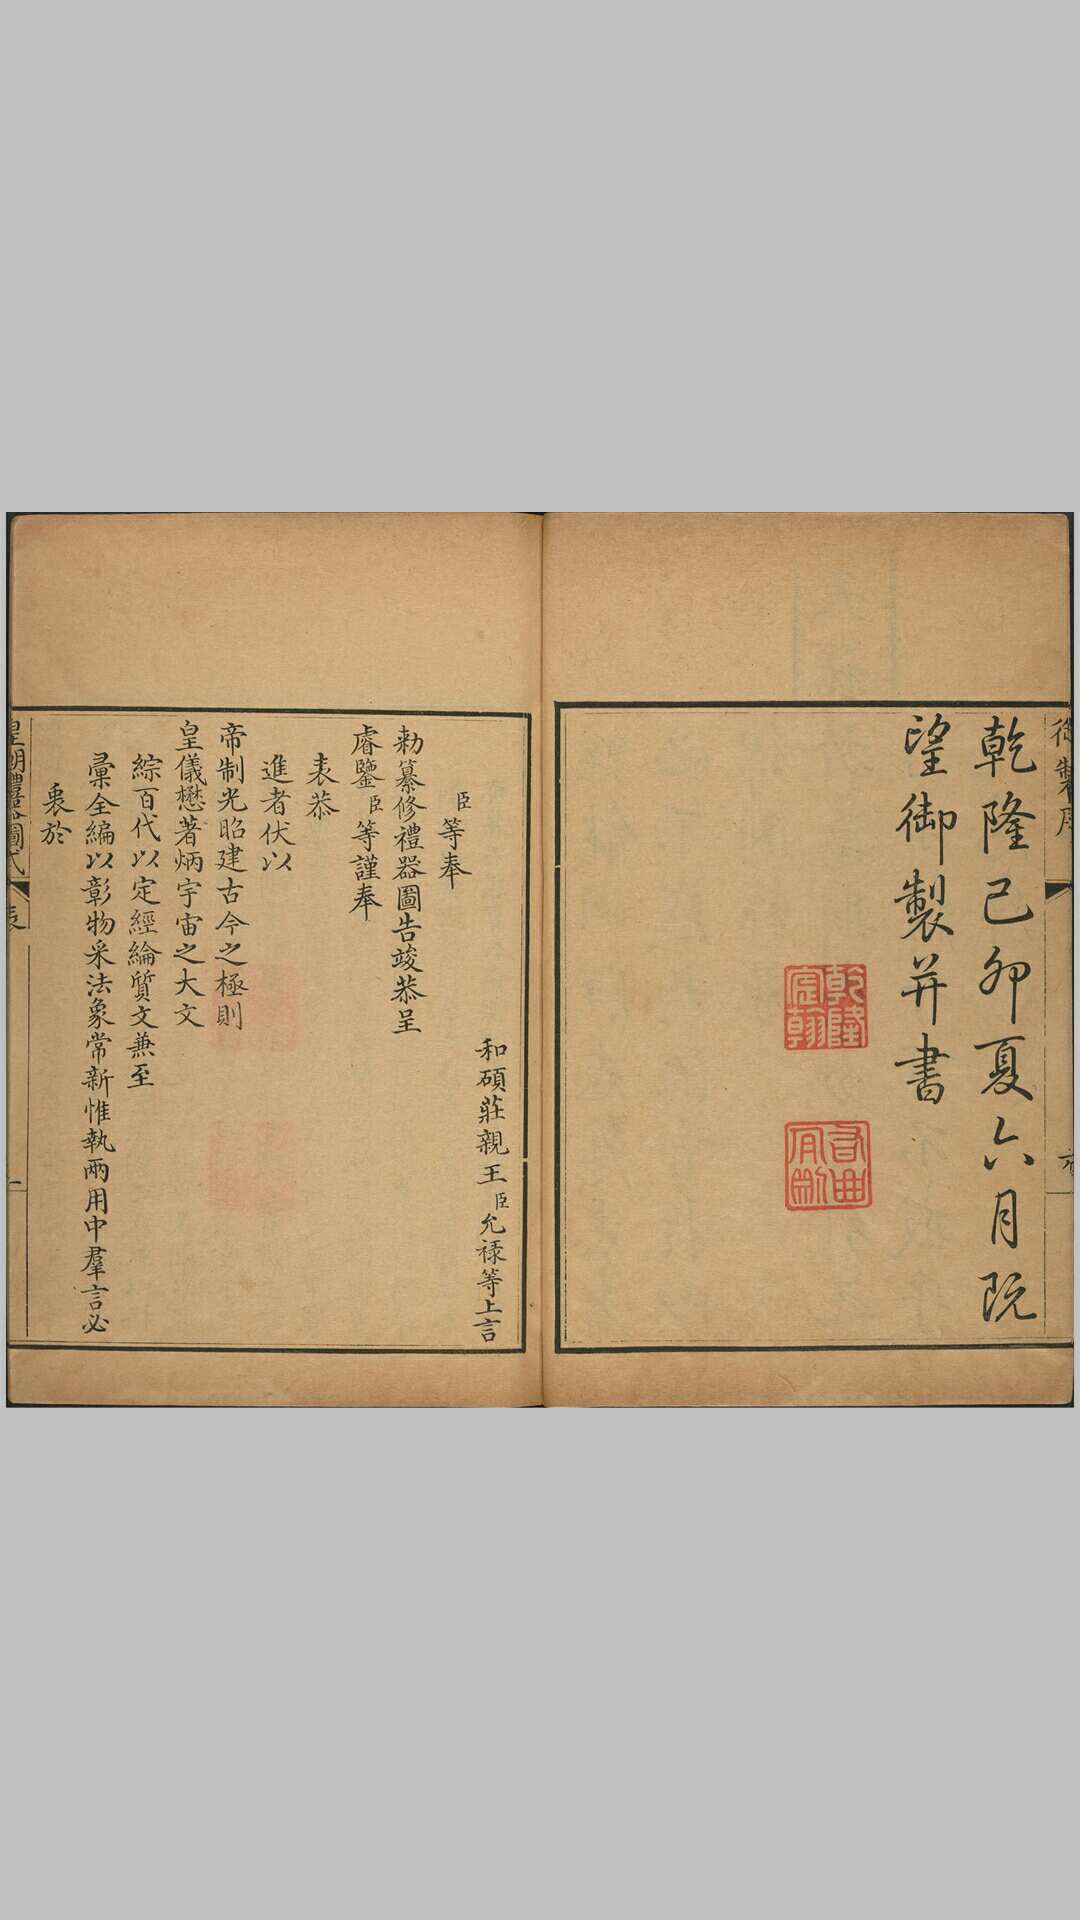 御製序
乾隆己卯夏六月既
望御製并書
乾隆
宸翰
和碩莊親王臣允祿等上言
臣等奉
勅纂修禮器圖告竣恭呈
睿鑒臣等謹奉
表恭
進者伏以
帝制光昭建古今之極則
皇儀懋著炳宇宙之大文
綜百代以定經綸質文兼至
彙全編以彰物采法象常新惟執兩用中羣言必
衷於
皇朝禮器圖式
表
一